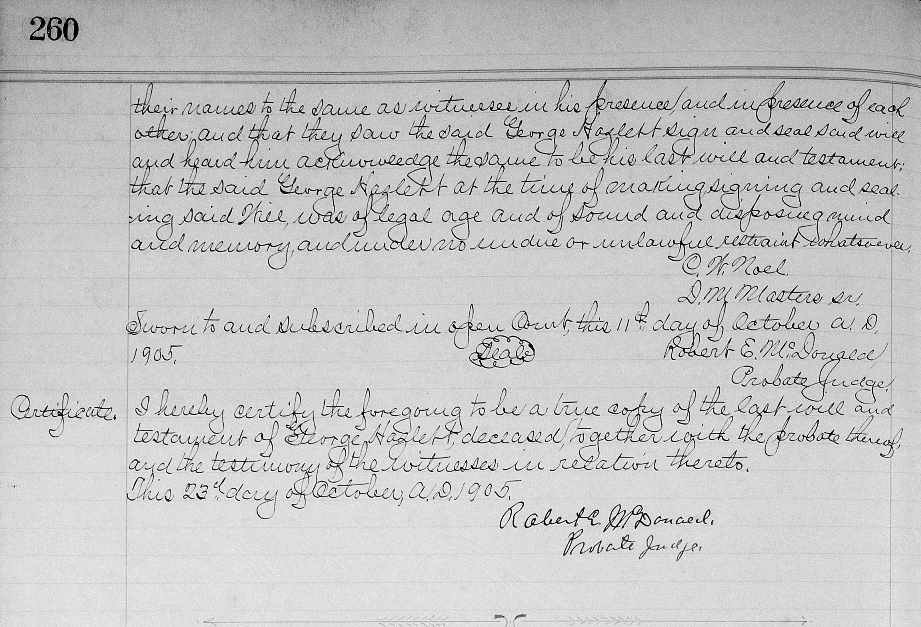 260
their names to the same as witnesses in his presence, and in presence of each
other; and that they saw the said George Hazlett sign and seal said will
and heard him acknowledge the same to be his last will and testament;
that the said George Hazlett at the time of making signing and seal-
ing said Will, was of legal age and of sound and disposing mind
and memory, and under no undue or unlawful restraint whatsoever.
C. W. Noel.
D. M. Masters sr.
Sworn to and subscribed in open Court, this 11th day of October A.D.
1905. Seal Robert E. McDonald,
Probate Judge.
Certificate. I hereby certify the foregoing to be a true copy of the last will and
testament of George Hazlett, deceased, together with the probate thereof,
and the testimony of the witnesses in relation thereto.
This 23d day of October, A.D. 1905.
Robert E. McDonald.
Probate Judge.